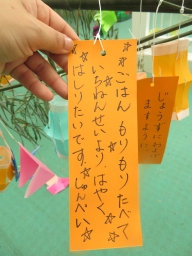 ごはん もりもり たべて
いちねんせいより はやく
はしりたいです。じゅんぺい
じょうずに
ますように